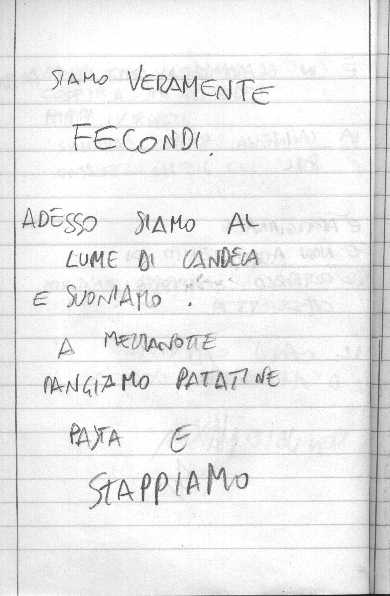 SIAMO VERAMENTE
FECONDI.
ADESSO SIAMO AL
LUME DI CANDELA
E SUONIAMO.
A MEZZANOTTE
MANGIAMO PATATINE
PASTA E
STAPPIAMO